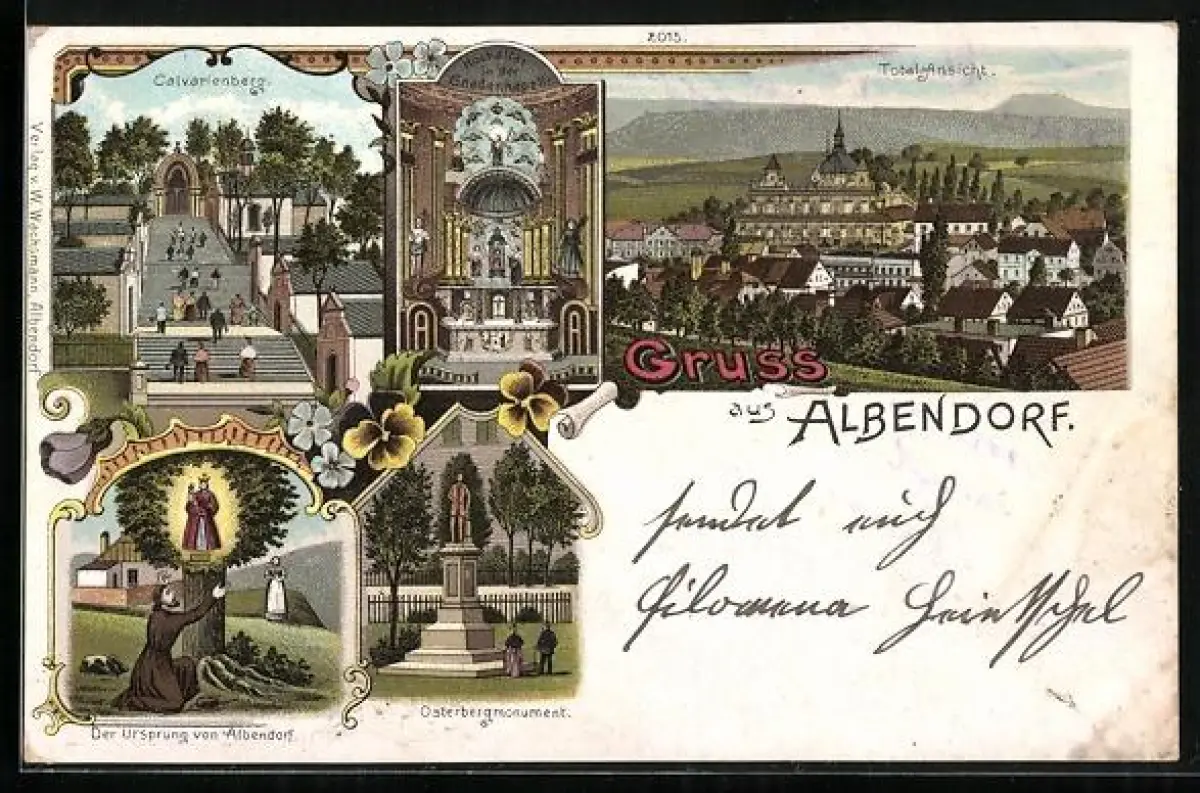 2015.
Calvarienberg.
Hochaltar
in der
Gnadenkapelle
Totalansicht.
Verlag v. W. Wachsmann, Albendorf
Gruss
aus ALBENDORF.
sendet euch
Filomena Heintschel
Der Ursprung von Albendorf.
Osterbergmonument.